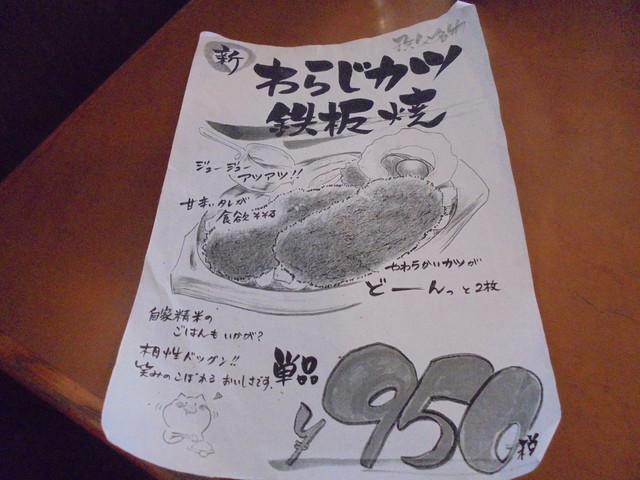 新
わらじカツ
鉄板焼
ジュージュー
アツアツ!!
甘辛いタレが
食欲そそる
やわらかいカツが
どーーんっと2枚
自家精米の
ごはんもいかが?
相性バッグン!!
笑みのこぼれる おいしさです。
単品
¥950
税